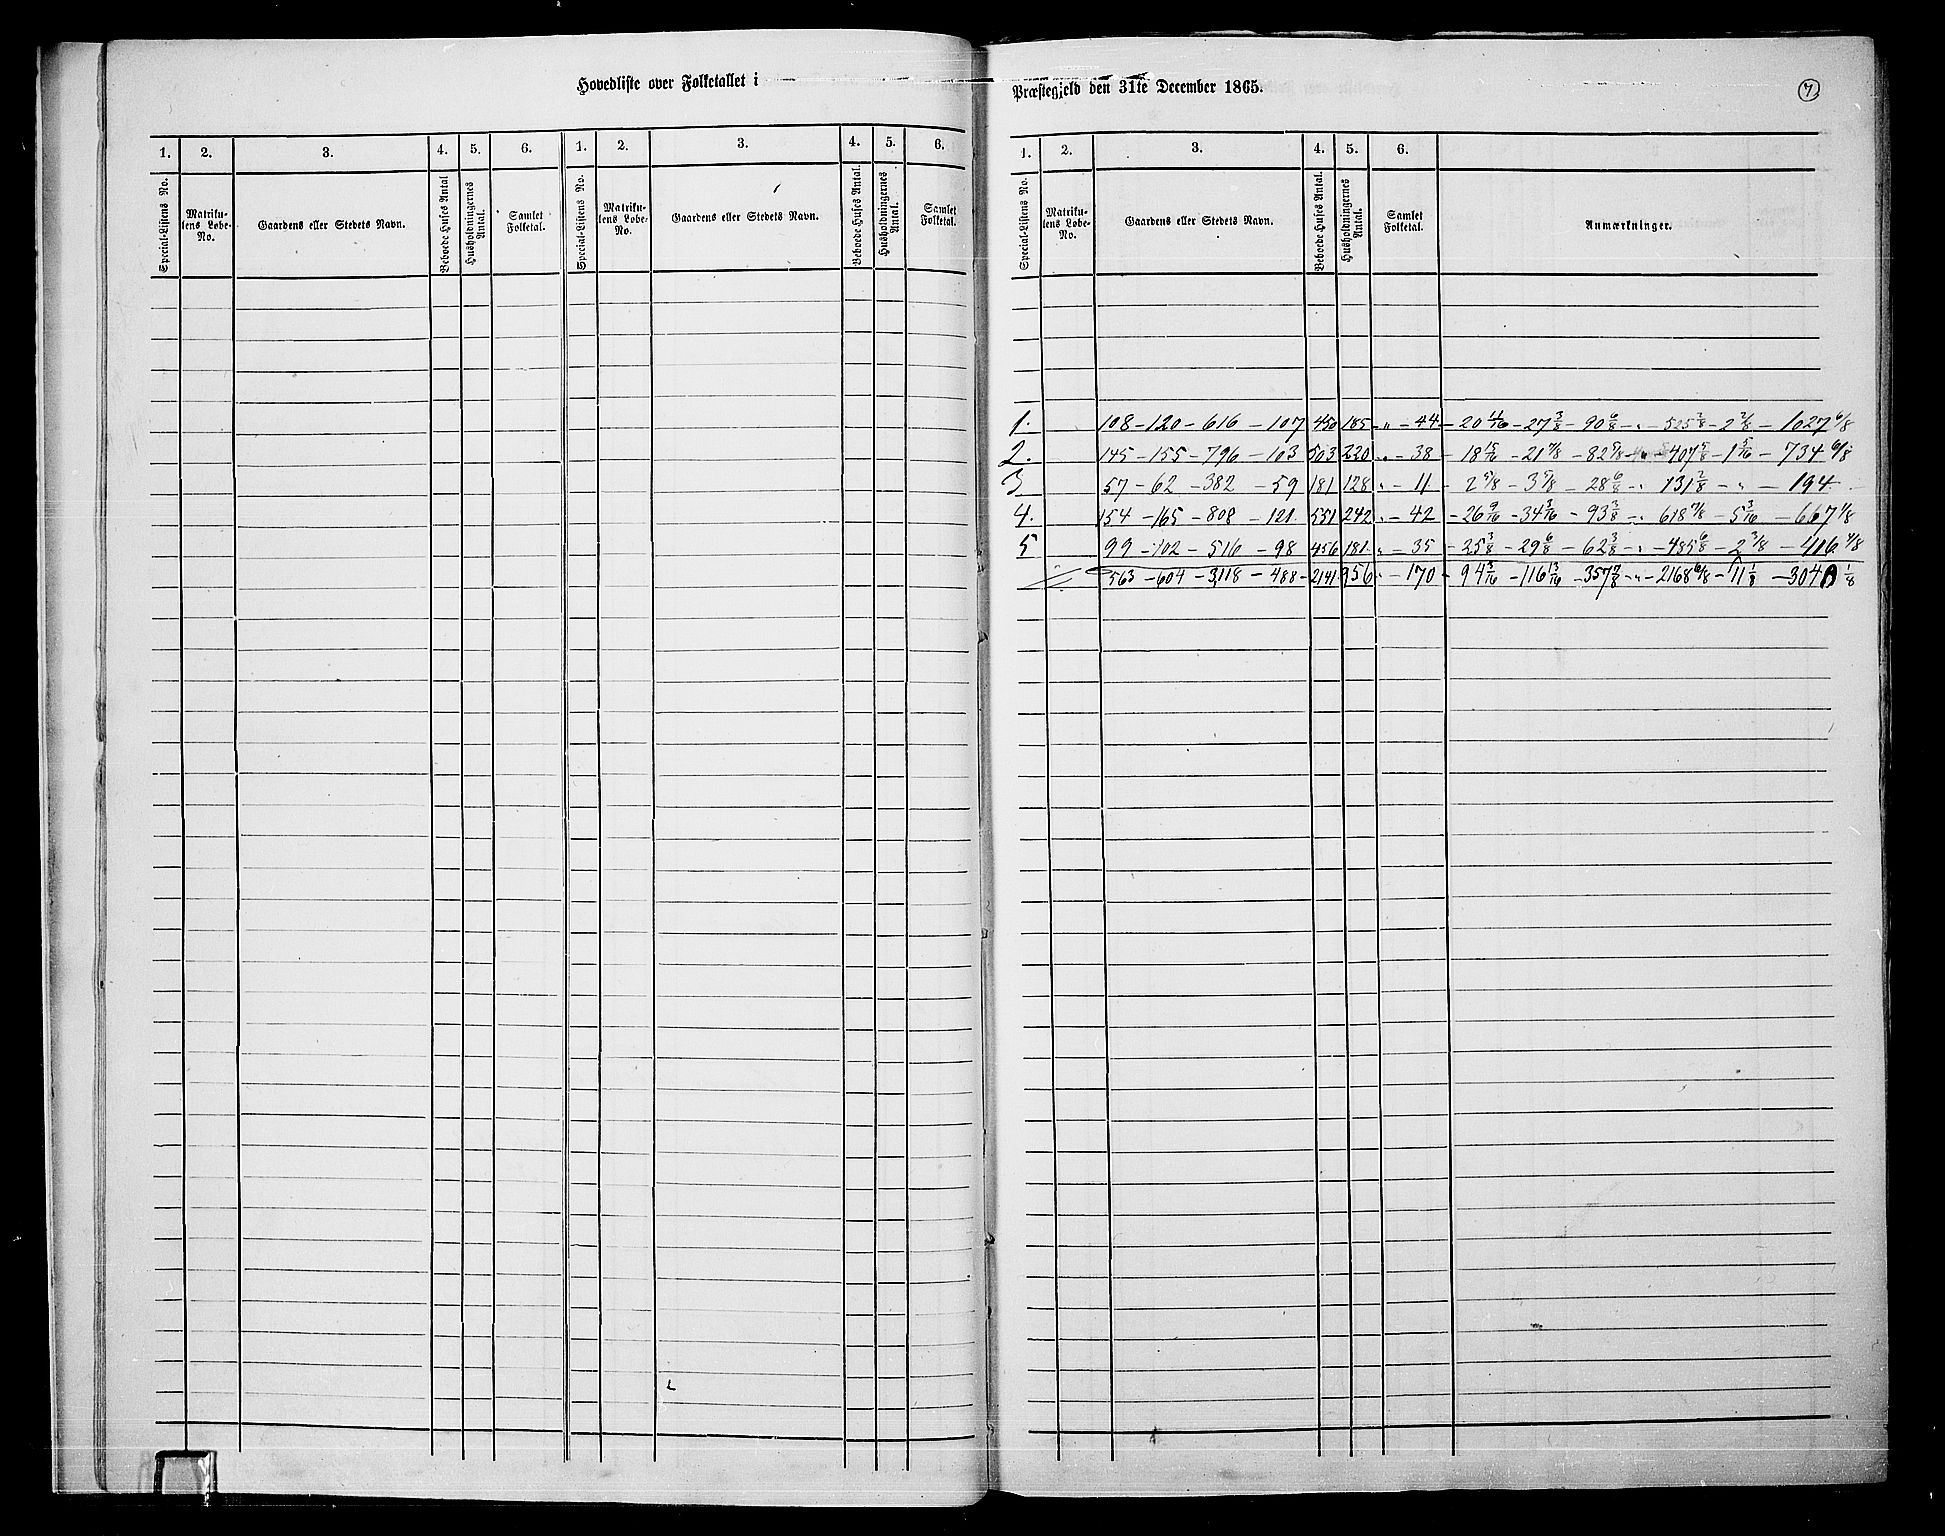 Hovedliste over Folketallet i
1. 2. 3. 4. 5. 6. 1. 2. 3. 4. 5. 6.
Special-Listens No. Matriku-lens Løbe-No. Gaardens eller Stedets Navn. Beboede Huses Antal Husholdningernes Antal. Samlet Folketal. Special-Listens No. Matriku-lens Løbe-No. Gaardens eller Stedets Navn. Beboede Huses Antal. Husholdningernes Antal. Samlet Folketal.
Præstegjeld den 31te December 1865.
7
1. 2. 3. 4. 5. 6.
Special-Listens No. Matriku-lens Løbe-No. Gaardens eller Stedets Navn. Beboede Huses Antal. Husholdningernes Antal. Samlet Folketal. Anmærkninger.
1. 108 - 120 - 616 - 107 450 185 - " - 44 - 20 11/16 - 27 3/8 - 90 6/8 - " - 525 3/8 - 2 3/8 - 1027 6/8
2. 145 - 155 - 796 - 103 503 220 - " - 38 - 18 15/16 - 21 7/8 - 82 5/8 - " - 407 5/8 - 1 5/16 - 734 6/8
3 57 - 62 - 382 - 59 181 128 " - 11 - 2 5/8 - 3 5/8 - 28 6/8 - " 131 2/8 - " - 194
4. 154 - 165 - 808 - 121 551 242 " - 42 - 26 9/16 - 34 3/16 - 93 3/8 - " 618 7/8 - 5 3/16 - 667 1/8
5 99 - 102 - 516 - 98 456 181 " - 35 - 25 3/8 - 29 6/8 - 62 3/8 - " - 485 6/8 - 2 3/8 - 416 4/8
563 - 604 - 3,118 - 488 - 2141 956 " - 170 - 94 3/16 - 116 13/16 - 357 7/8 - " - 2168 6/8 - 11 1/8 - 3040 1/8